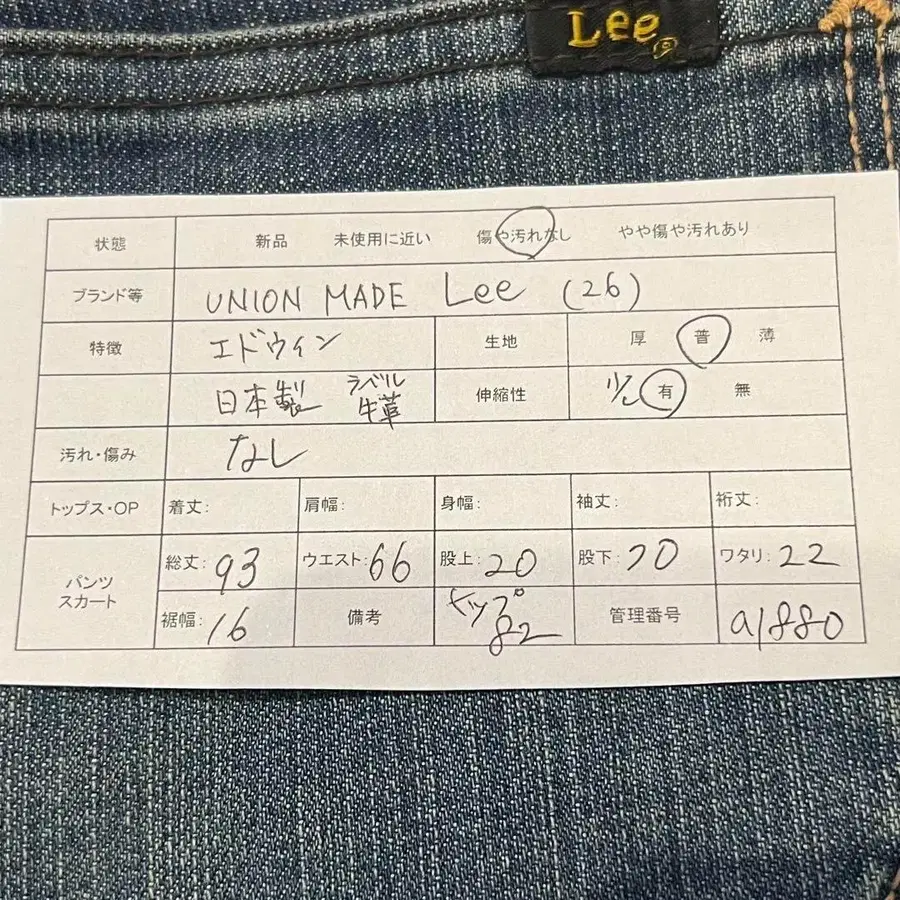 Lee®
状態 新品 未使用に近い 傷や汚れなし やや傷や汚れあり
ブランド等 UNION MADE Lee (26)
特徴 エドウィン 生地 厚 普 薄
日本製 ラベル牛革 伸縮性 少し 有 無
汚れ・傷み なし
トップス・OP 着丈: 肩幅: 身幅: 袖丈: 裄丈:
パンツ スカート 総丈: 93 ウエスト: 66 股上: 20 股下: 70 ワタリ: 22
裾幅: 16 備考 ヒップ 82 管理番号 a1880